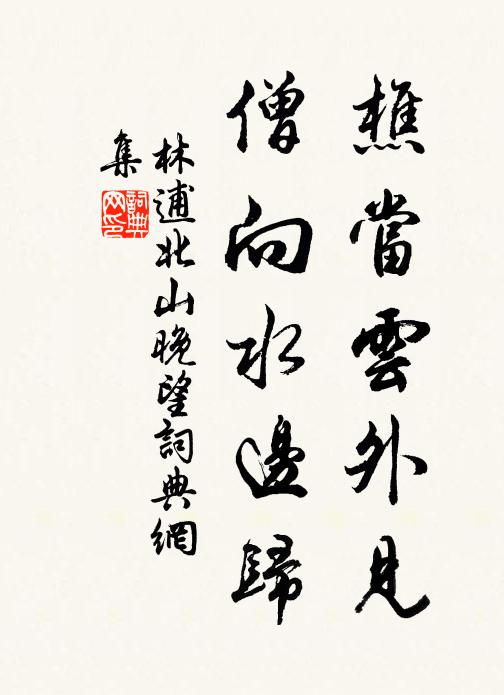 樵當雲外見
僧向水邊歸
林逋北山晚望詞典網
集
詞典
网印